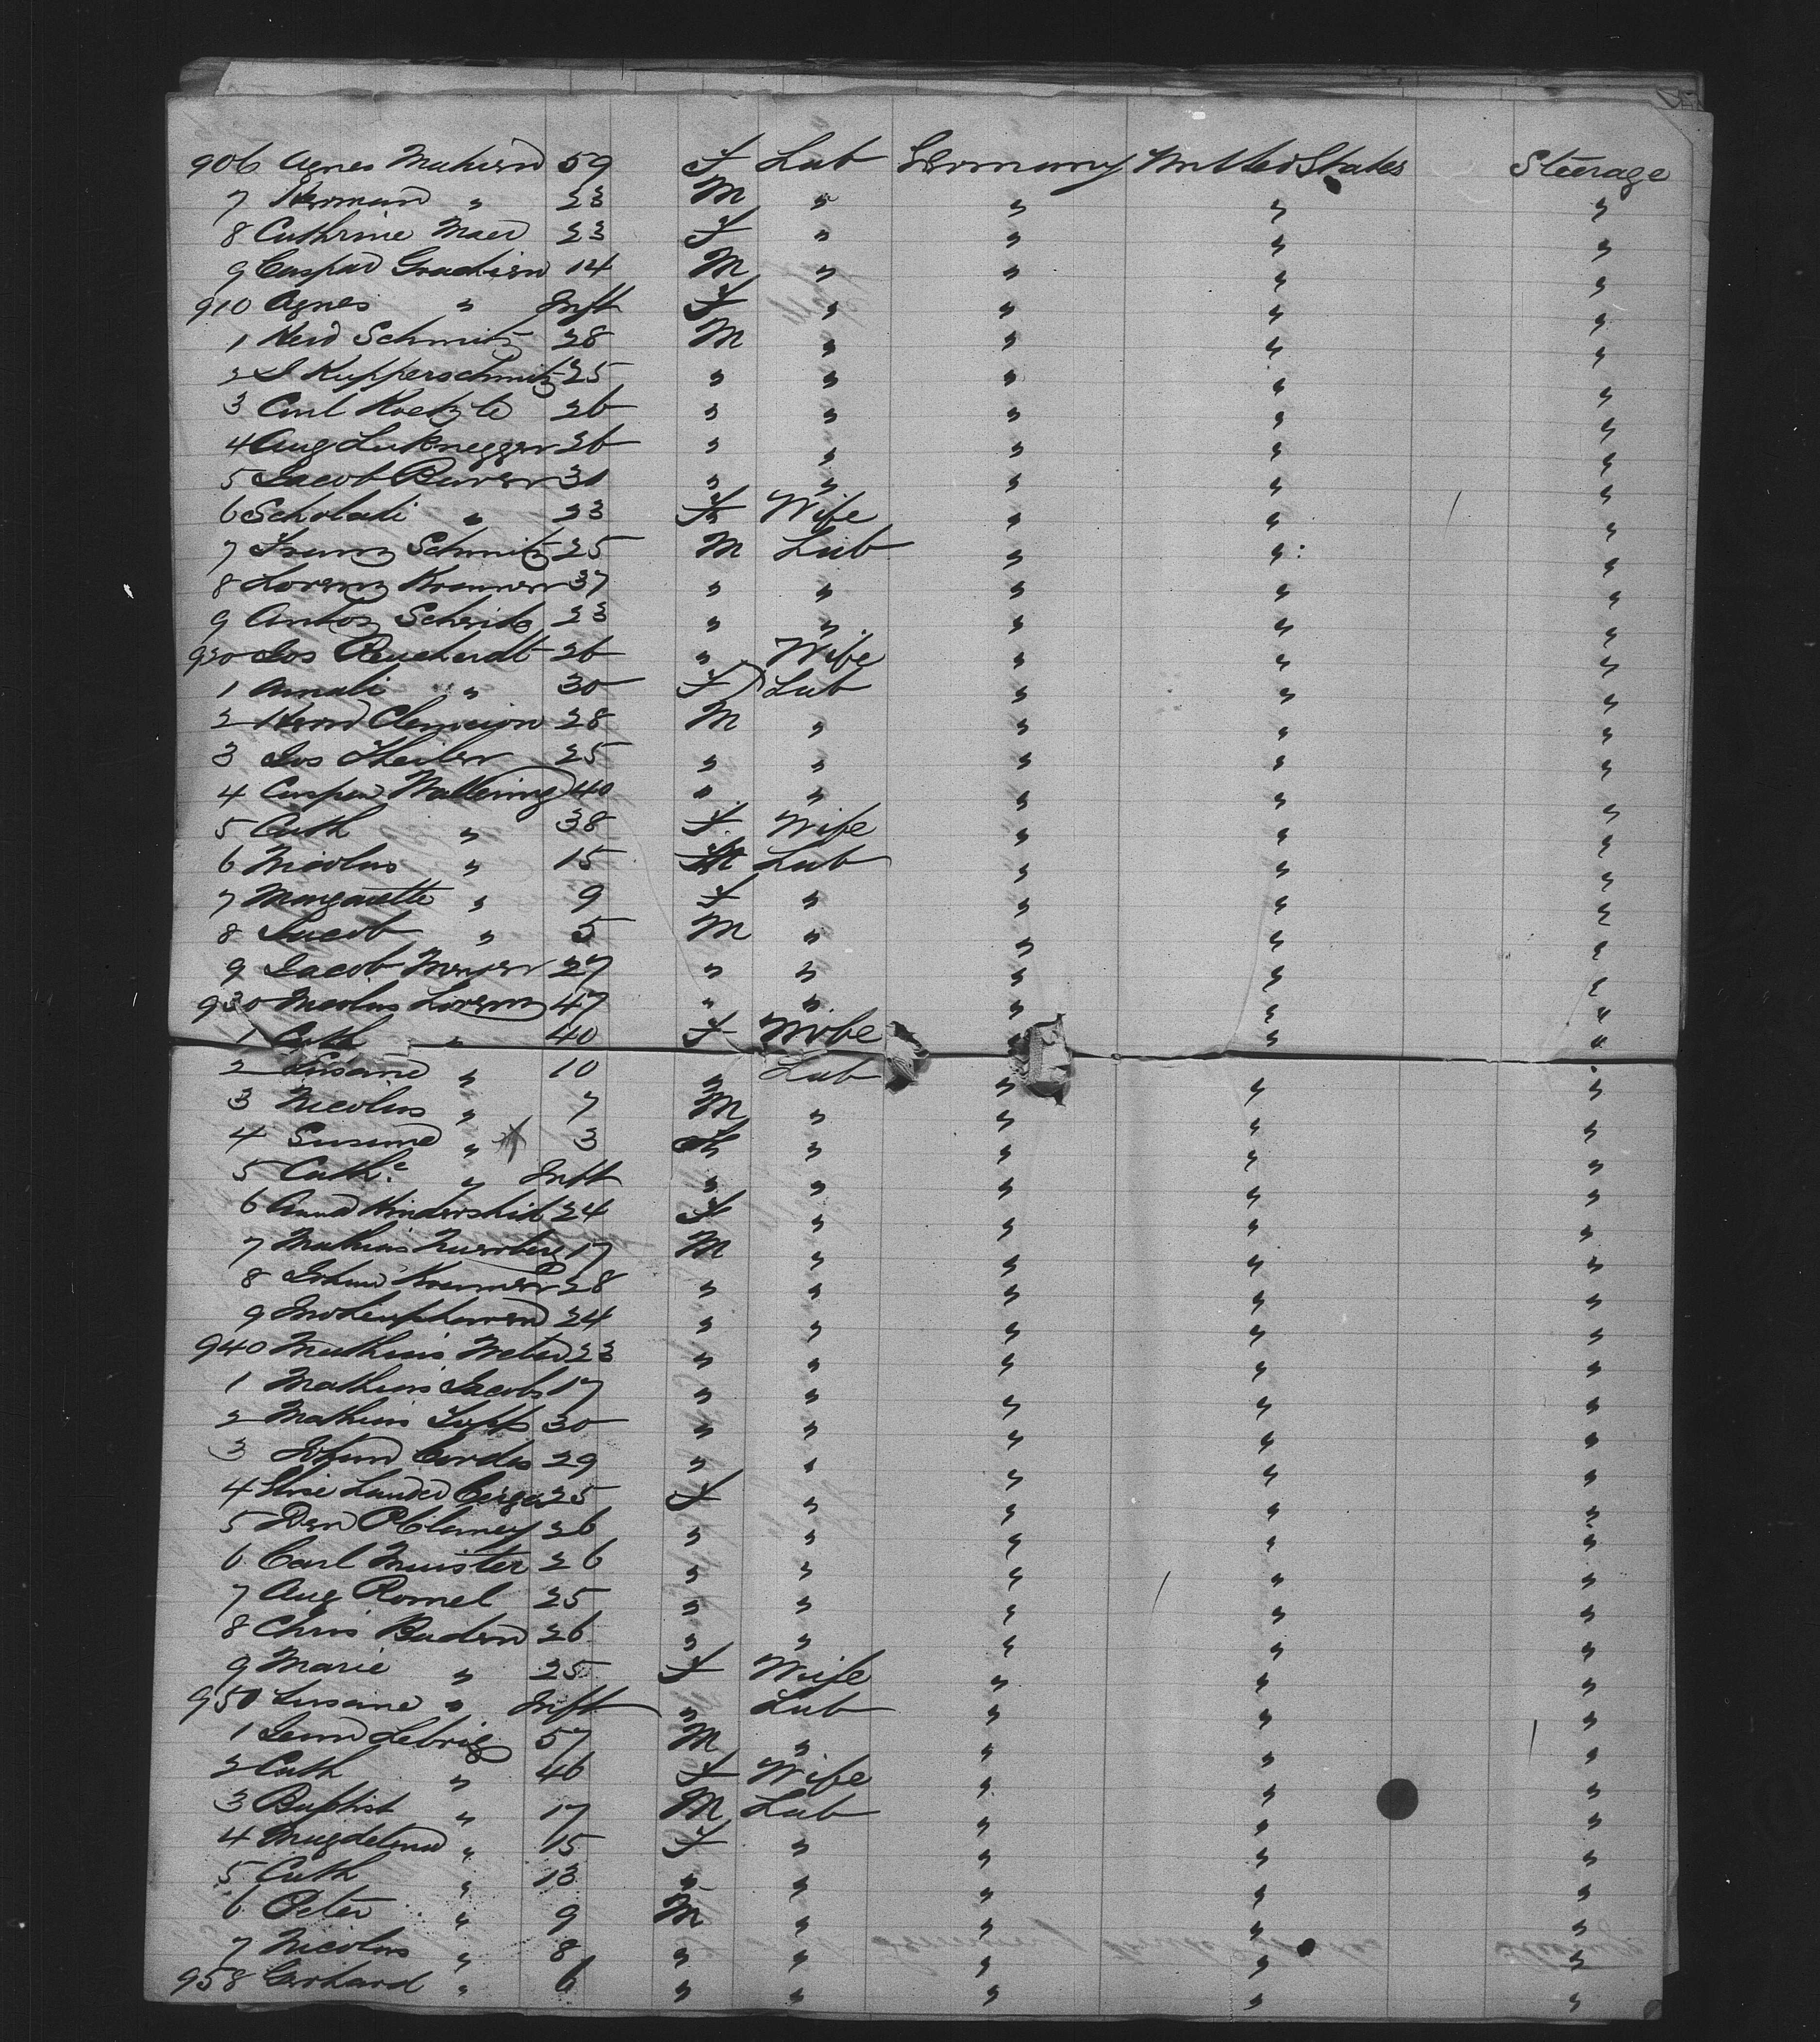 906 Agnes Muhiern 59 F Lab Germany United States Steerage
7 Herman " 23 M " " " "
8 Cathrine Maed 23 F " " " "
9 Caspar Grachien 14 M " " " "
910 Agnes " Inft F " " " "
1 Schmitz 28 M " " " "
2 J Kupperschmitz 25 " " " " "
3 Carl Koetzle 26 " " " " "
4 Aug 26 " " " " "
5 Jacob Burer 31 " " " " "
6 " 23 F Wife " " "
7 Franz Schmitz 25 M Lab " " "
8 Lorenz Kramer 37 " " " " "
9 Anton 23 " " " " "
920 Jos Reichardt 26 " Wife " " "
1 Amali " 30 F Lab " " "
2 28 M " " " "
3 Jos Theiler 25 " " " " "
4 Caspar Wallering 40 " " " " "
5 Cath " 38 F Wife " " "
6 Nicolus " 15 M Lab " " "
7 Margarette " 9 F " " " "
8 Jacob " 5 M " " " "
9 Jacob Meyer 27 " " " " "
930 Nicolus Lorenz 47 " " " " "
1 Cath " 40 F Wife " " "
2 Susana " 10 " Lab " " "
3 Nicolus " 7 M " " " "
4 Susana " 3 F " " " "
5 Cathe " Inft " " " " "
6 Anna 24 F " " " "
7 Mathias 17 M " " " "
8 Johan Kramer 28 " " " " "
9 24 " " " " "
940 Mathias Weber 23 " " " " "
1 Mathias Jacobs 17 " " " " "
2 Mathias 30 " " " " "
3 Johan Cordes 29 " " " " "
4 Elise 25 F " " " "
5 26 " " " " "
6 Carl Muister 26 " " " " "
7 Aug Romel 25 " " " " "
8 Chris Baden 26 " " " " "
9 Marie " 25 F Wife " " "
950 Susane " Inft " Lab " " "
1 Lebrig 57 M " " " "
2 Cath " 46 F Wife " " "
3 Baptist " 17 M Lab " " "
4 Magdelena " 15 F " " " "
5 Cath " 13 " " " " "
6 Peter " 9 M " " " "
7 Nicolus " 8 " " " " "
958 Gerhard " 6 " " " " "